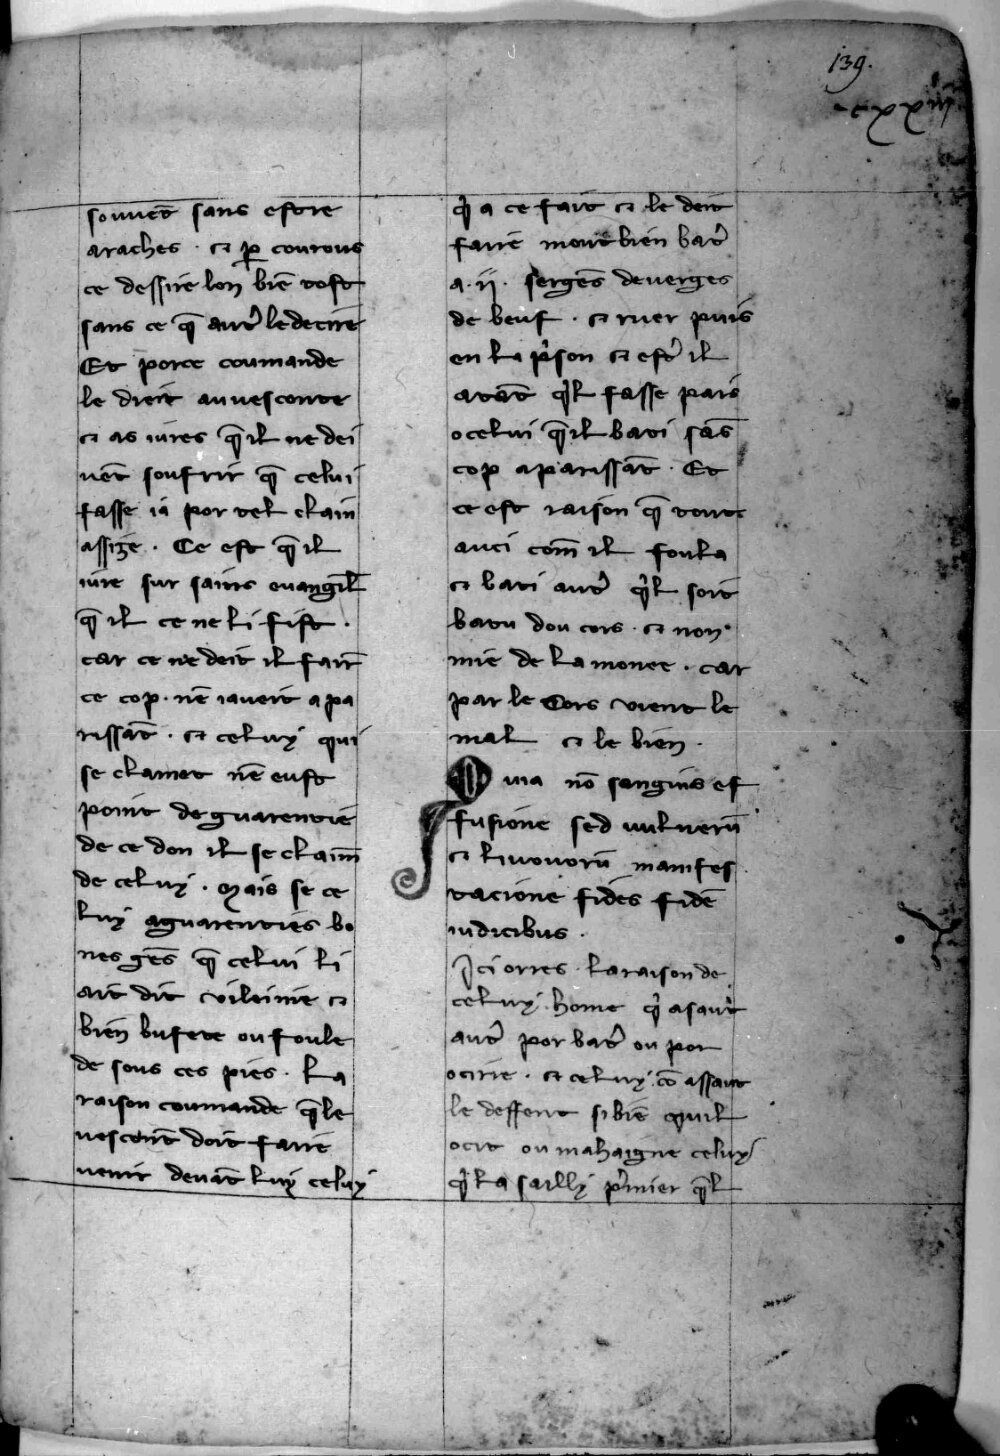 139.
cxxiii
souuẽt sans estre
araches · et ꝑ courous
ce dessire lon biẽ tost
sans ce q̃ autr̃ le decire
Et porce coumande
le dreit au uesconte
et as iures q̃ il ne dei
uẽt soufrir q̃ celui
fasse ia por tel claim
assize · Ce est q̃ il
iure sur sains euangil̃
q̃ il ce ne li fist ·
car ce ne deit il fair̃
ce cop · nẽ iaueit apa
rissãt · et celuy qui
se clamot nẽ eust
point de guarentie
de ce don il se claim̃
de celuy · Mais se ce
luy a guarenties bo
nes gẽs q̃ celui li
ait dit vileinie et
bien bufete ou foule
de sous ces pies · La
raison coumande q̃ le
uescont̃ doit faire
uenir deuãt luy celuy
q̓ a ce fait et le deit
faire mout bien batr̃
a · ii · sergẽs de uerges
de beuf · et ruer puis
en la p̓son et estr̃ il
atãt q̓l fasse pais
o celui q̃ il bati sãs
cop aparissãt · Et
ce est raison q̃ tout
auci com̃ il foula
et bati autr̃ q̓l soit
batu dou cors · et non
mie de la monee · car
par le Cors vient le
mal et le bien ·
Quia nõ sanguis ef
fusione sed uulnerũ
et liuouorũ manifes
tacione fides fidẽ
iudicibus ·
Ici orres la raison de
celuy home q̓ asaut
autr̃ por batr̃ ou por
ocirre · et celuy cõ assaut
le deffent si biẽ quil
ocit ou mahaigne celuy
q̓ la sailly p̓mier q̃l